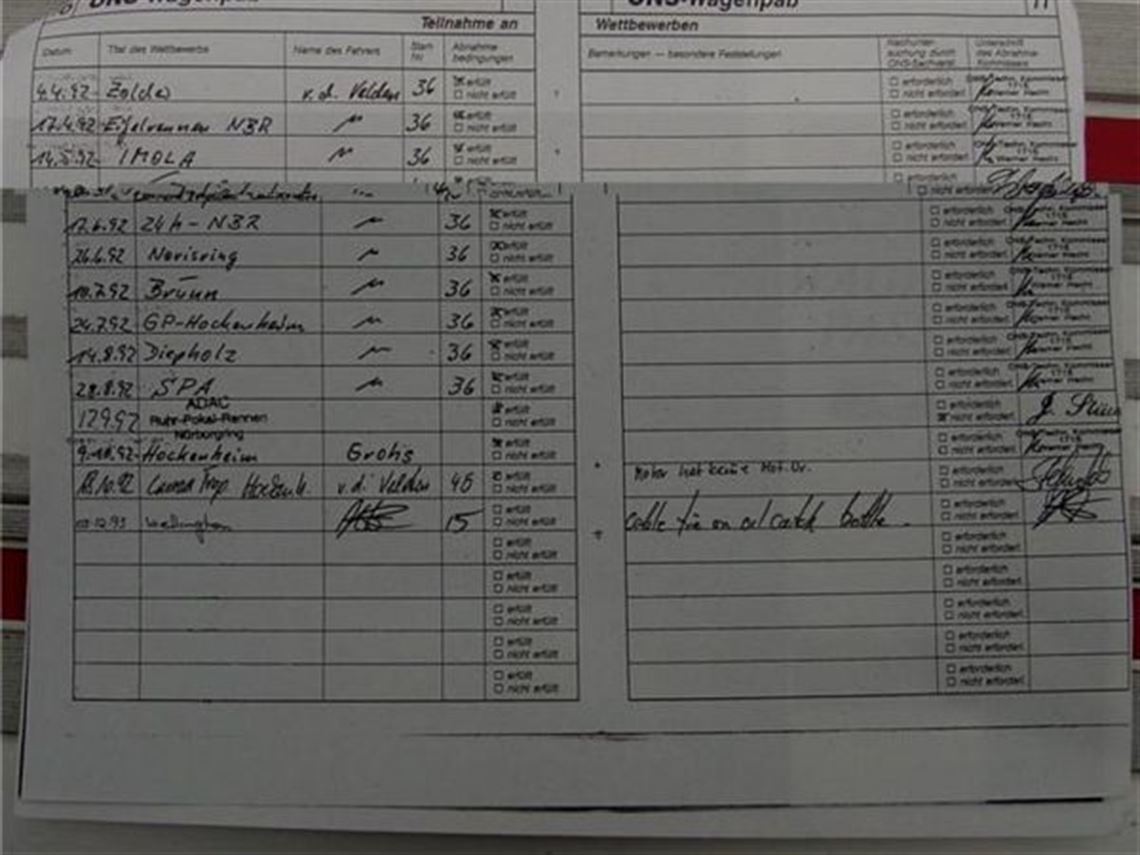 ONS-Wagenpaß ONS-Wagenpaß 11
Teilnahme an Wettbewerben
Datum Titel des Wettbewerbs Name des Fahrers Start Nr Abnahme bedingungen Bemerkungen — besondere Feststellungen Nachuntersuchung durch ONS-Sachverst. Unterschrift des Abnahme Kommissars
4.4.92 Zolder v.d. Velden 36 erfüllt nicht erfüllt erforderlich nicht erforderl.
17.4.92 Eifelrennen NBR 〃 36 erfüllt nicht erfüllt erforderlich nicht erforderl. Werner Hecht
14.5.92 IMOLA 〃 36 erfüllt nicht erfüllt erforderlich nicht erforderl. Werner Hecht
nicht erforderl.
12.6.92 24h-NBR 〃 36 erfüllt nicht erfüllt erforderlich nicht erforderl. ONS-Techn. Kommissar 1716 Werner Hecht
26.6.92 Norisring 〃 36 erfüllt nicht erfüllt erforderlich nicht erforderl. ONS-Techn. Kommissar 1716 Werner Hecht
10.7.92 Brünn 〃 36 erfüllt nicht erfüllt erforderlich nicht erforderl. ONS-Techn. Kommissar 1716 Werner Hecht
24.7.92 GP-Hockenheim 〃 36 erfüllt nicht erfüllt erforderlich nicht erforderl. ONS-Techn. Kommissar 1716 Werner Hecht
14.8.92 Diepholz 〃 36 erfüllt nicht erfüllt erforderlich nicht erforderl. ONS-Techn. Kommissar 1716 Werner Hecht
28.8.92 SPA 〃 36 erfüllt nicht erfüllt erforderlich nicht erforderl. ONS-Techn. Kommissar 1716 Werner Hecht
12.9.92 ADAC Ruhr-Pokal-Rennen Nürburgring erfüllt nicht erfüllt erforderlich nicht erforderl.
9.10.92 Hockenheim Grohs erfüllt nicht erfüllt erforderlich nicht erforderl. ONS-Techn. Kommissar 1716
18.10.92 v.d. Velden 46 erfüllt nicht erfüllt Motor hat keine erforderlich nicht erforderl.
Wellington 15 erfüllt nicht erfüllt cable tie on oil catch bottle. erforderlich nicht erforderl.
erfüllt nicht erfüllt erforderlich nicht erforderl.
erfüllt nicht erfüllt erforderlich nicht erforderl.
erfüllt nicht erfüllt erforderlich nicht erforderl.
erfüllt nicht erfüllt erforderlich nicht erforderl.
erfüllt nicht erfüllt erforderlich nicht erforderl.